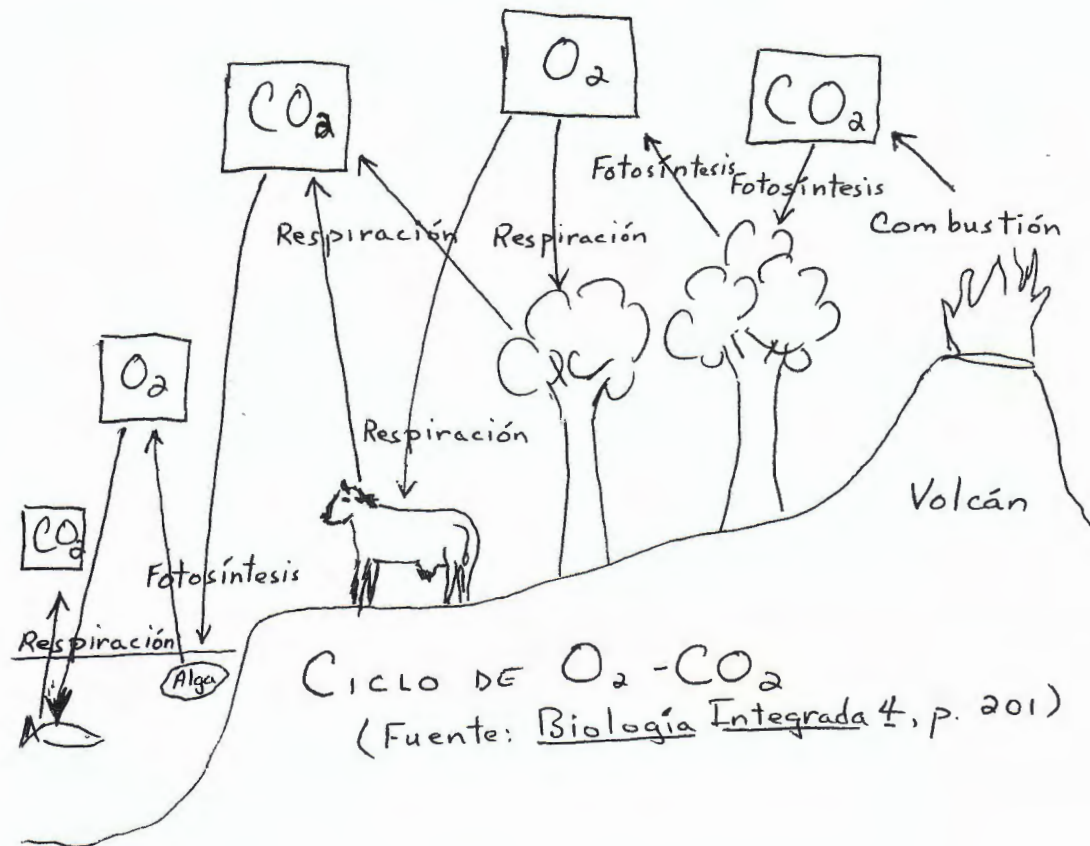 O₂
CO₂
CO₂
Fotosíntesis
Fotosíntesis
Combustión
Respiración
Respiración
O₂
Respiración
CO₂
Volcán
Fotosíntesis
Respiración
Alga
CICLO DE O₂-CO₂
(Fuente: Biología Integrada 4, p. 201)